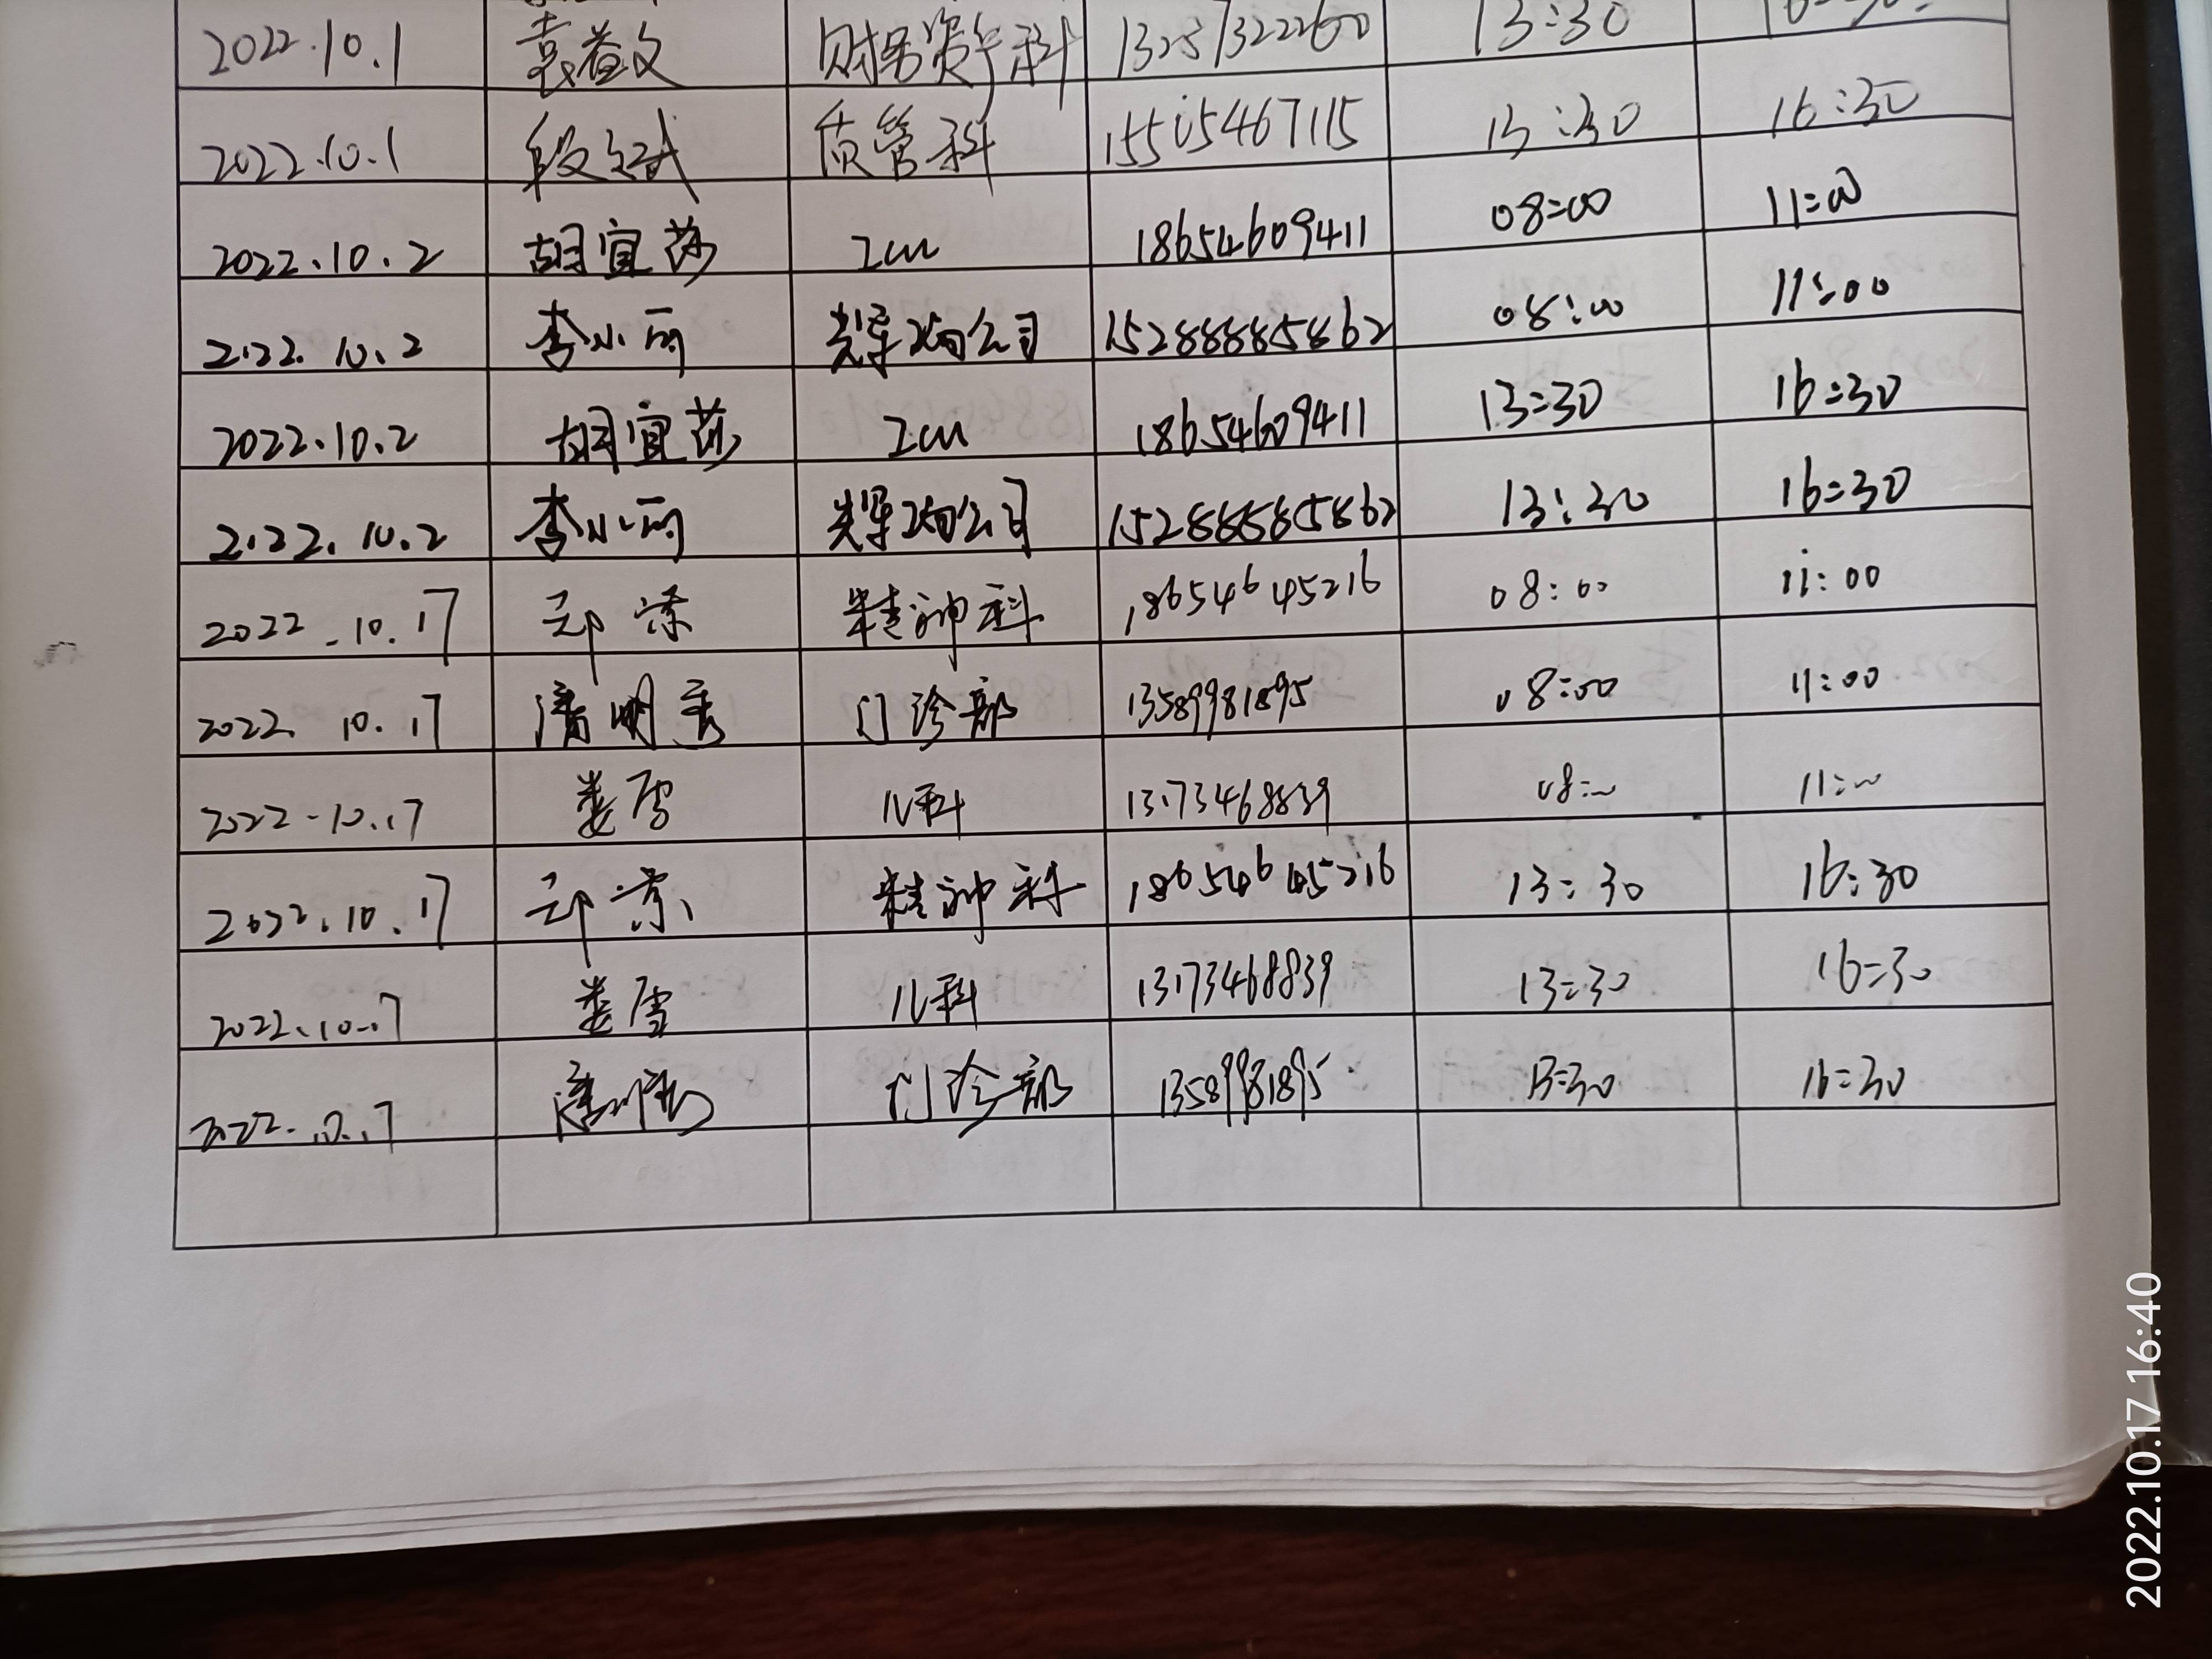 2022.10.1 袁益文 财务资产科 13257322260 13:30 16:30
2022.10.1 段文斌 质管科 15505467115 13:30 16:30
2022.10.2 胡宜莎 ICU 18654609411 08:00 11:00
2022.10.2 李小丽 公司 15288885862 08:00 11:00
2022.10.2 胡宜莎 ICU 18654609411 13:30 16:30
2022.10.2 李小丽 公司 15288885862 13:30 16:30
2022.10.17 邓 精神科 18654645216 08:00 11:00
2022.10.17 明 门诊部 13589981895 08:00 11:00
2022.10.17 娄雪 儿科 13173468839 08:00 11:00
2022.10.17 邓 精神科 18654645216 13:30 16:30
2022.10.17 娄雪 儿科 13173468839 13:30 16:30
2022.10.17 门诊部 13589981895 13:30 16:30
2022.10.17 16:40